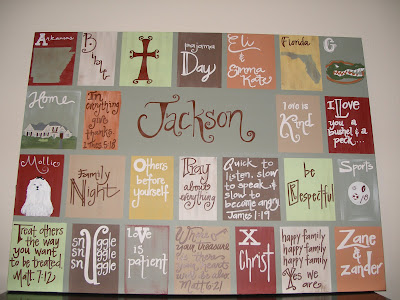 Arkansas
Bible
pajama
Day
Eli
&
Emma
Kate
Florida
G
Home
In
everything
give
thanks
1 Thes 5:18
Jackson
love is
Kind
I Love
you
a bushel
& a
peck...
Mollie
Family
Night
Others
before
yourself
Pray
about
everything
Quick to
listen, slow
to speak &
slow to
become angry
James 1:19
be
Respectful
Sports
Treat others
the way
you want
to be treated.
Matt. 7:12
snuggle
snuggle
snuggle
love
is
patient
Where
your treasure
is there
your heart
will be also
Matt 6:21
X
Christ
happy family
happy family
happy family
Yes we
are
Zane
&
Zander